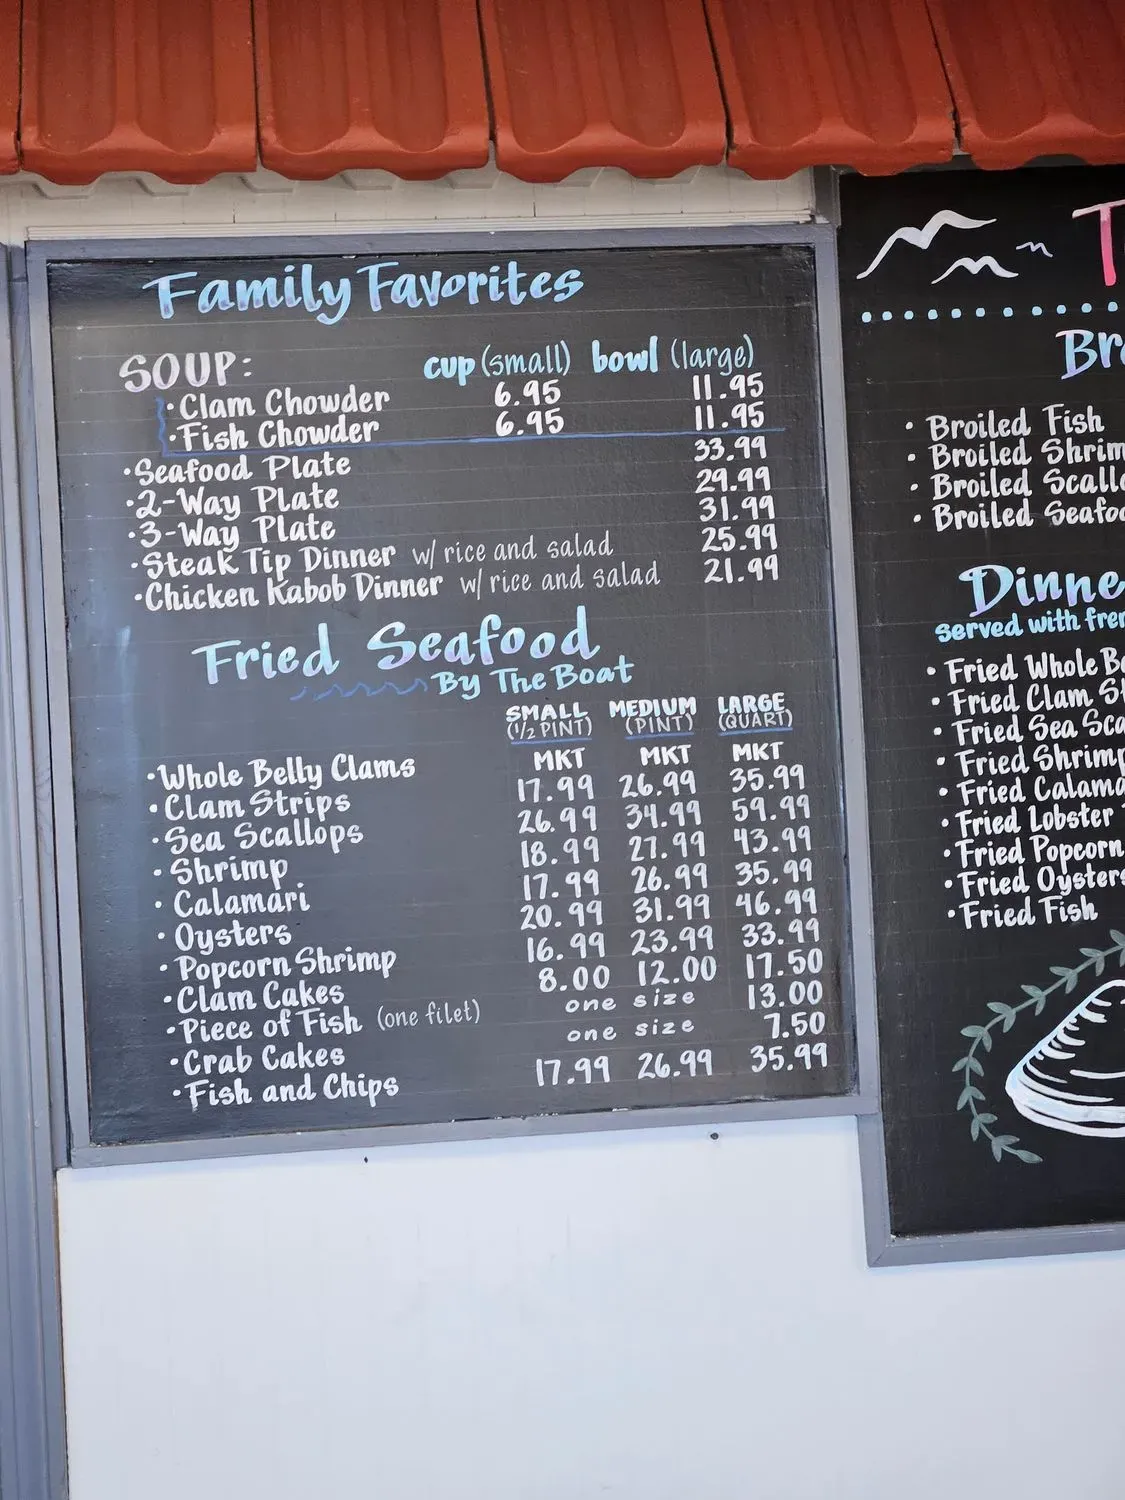 Family Favorites
SOUP: cup (small) bowl (large)
• Clam Chowder 6.95 11.95
• Fish Chowder 6.95 11.95
• Seafood Plate 33.99
• 2-Way Plate 29.99
• 3-Way Plate 31.99
• Steak Tip Dinner w/ rice and salad 25.99
• Chicken Kabob Dinner w/ rice and salad 21.99
Fried Seafood
By The Boat
SMALL MEDIUM LARGE
(1/2 PINT) (PINT) (QUART)
• Whole Belly Clams MKT MKT MKT
• Clam Strips 17.99 26.99 35.99
• Sea Scallops 26.99 34.99 59.99
• Shrimp 18.99 27.99 43.99
• Calamari 17.99 26.99 35.99
• Oysters 20.99 31.99 46.99
• Popcorn Shrimp 16.99 23.99 33.99
• Clam Cakes 8.00 12.00 17.50
• Piece of Fish (one filet) one size 13.00
• Crab Cakes one size 7.50
• Fish and Chips 17.99 26.99 35.99
• Broiled Fish
• Broiled
• Broiled
• Broiled
served with
• Fried Whole
• Fried Clam
• Fried Sea
• Fried Shrimp
• Fried
• Fried Lobster
• Fried Popcorn
• Fried Oysters
• Fried Fish